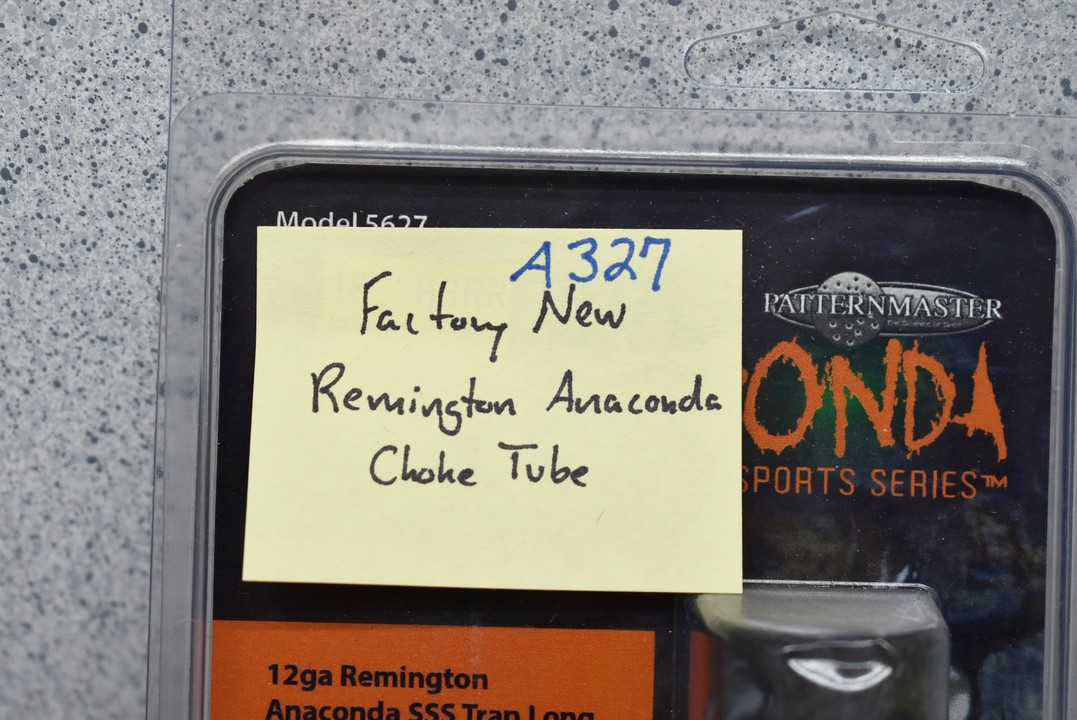 Model 5627
A327
Factory New
Remington Anaconda
Choke Tube
PATTERNMASTER
ONDA
SPORTS SERIES™
12ga Remington
Anaconda SSS Trap Long